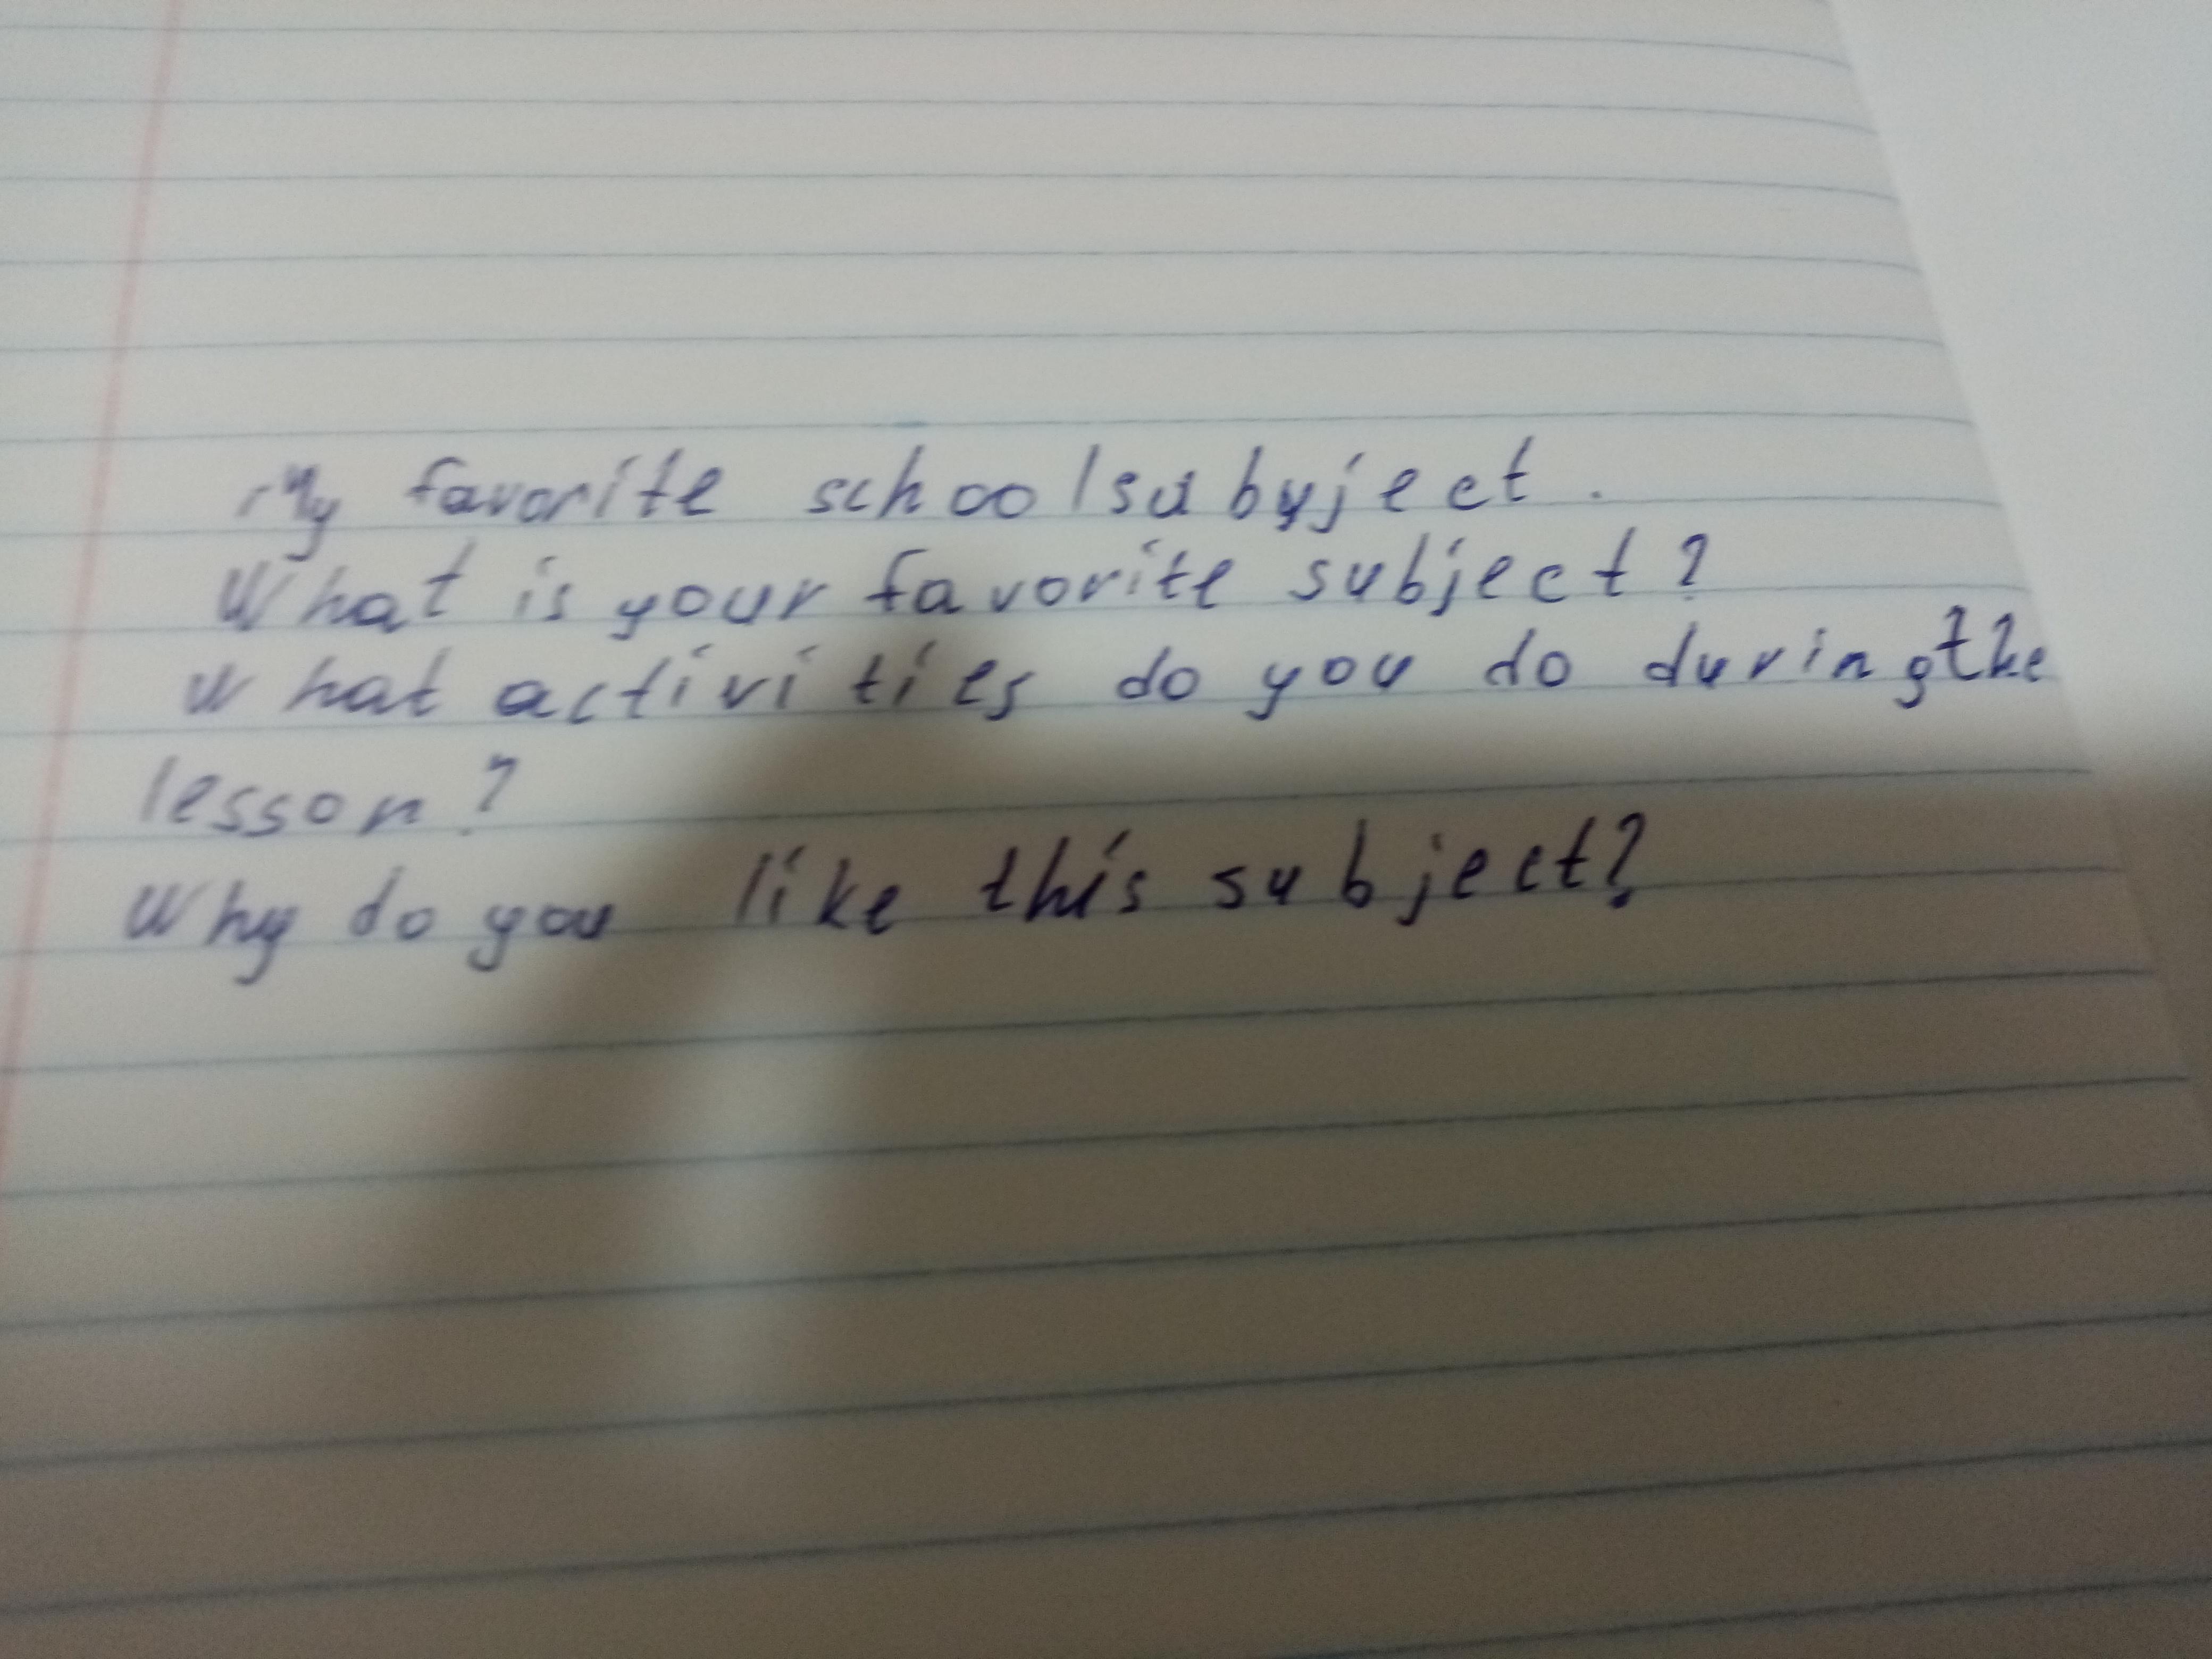 My favorite school subyject.
What is your favorite subject?
What activities do you do during the
lesson?
Why do you like this subject?